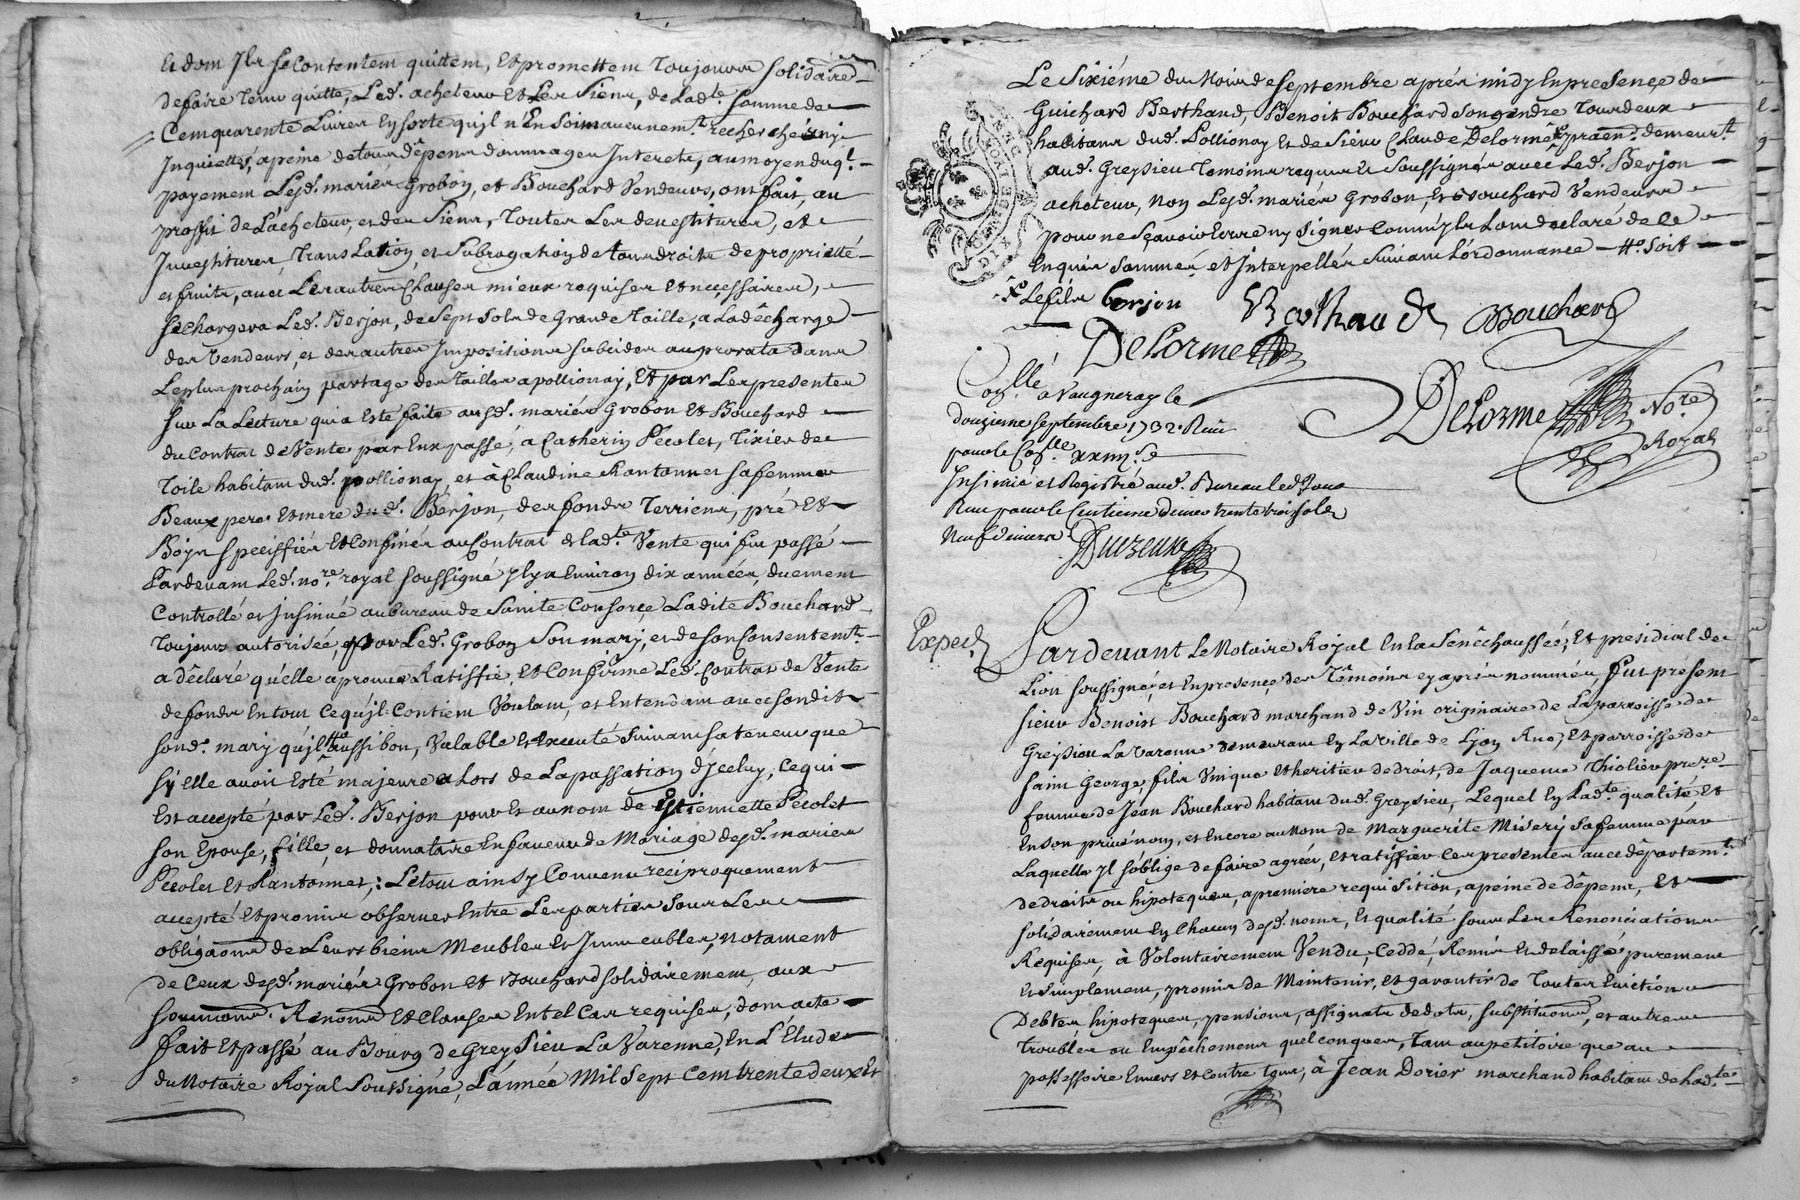 et dont ils se contentent quittent, et promettent toujours solidaire
de faire tenir quitte, led. acheteur et les siens, de lad.te somme de
cent quarente livres en sorte qu'il n'en soit aucunem.t recherchés ny
inquiettés, a peine de tous dêpens dommages interets, au moyen duq.l
payement lesd. mariés Grobon, et Bouchard vendeurs, ont fait, au
proffit de l'acheteur, et des siens, toutes les devestitures, et
investitures, translation, et subrogation de tous droits de proprietté
et fruits, avec les autres clauses mieux requises et necessaires,
se chargera led. Berjon, de sept sols de grande taille, a la décharge
des vendeurs, et des autres impositions subcides au prorata dans
le plus prochain partage des tailles a pollionay, et par les presentes
sur la lecture qui a esté faite ausd. mariés Grobon et Bouchard
du contrat de vente par eux passé, a Catherin Pecolet, tixier de
toile habitant dud. pollionay et à Claudine chantonnet sa femme
beaux pere et mere dud. Berjon, des fonds terriens, pré et
bois speciffiés et confinés au contrat de lad.te vente qui fut passé
pardevant led. no.re royal soussigné il y a environ dix années, duement
controllé et insinué au bureau de Sainte Consorce, ladite Bouchard
toujours autorisée, par led. Grobon son mary, et de son consentem.t
a déclaré qu'elle aprouve ratiffie, et confirme led. contrat de vente
de fonds en tout ce qu'il contient voulant, et entendant avec sondit
sond. mary qu'il aussi bon, valable et executé suivant sa teneur que
sy elle avoit esté majeure alors de la passation d'icelluy, ce qui
est accepté par led. Berjon pour et au nom de Estiennette Pecolet
son epouse, fille, et donnataire en faveur de mariage desd. mariés
Pecolet et Chantonnet; le tout ainsy convenu réciproquement
accepté et promis observer entre les parties sous les
obligaons de leurs biens meubles et immeubles, notament
de ceux desd. mariés Grobon et Bouchard solidairement, aux
soumions. Renons et clauses en tel cas requises, dont acte
fait et passé au Bourg de Greysieu La Varenne, en l'Etude
du Notaire Royal soussigné, l'année mil sept cent trente deux et
Le sixiéme du mois de septembre aprés midy en presence de
Guichard Berthaud, Benoit Bouchard son gendre tous deux
habitans dud. Pollionay et de sieur Claude Delorme praen. demeur.t
aud. Greysieu temoins requis et soussignés avec led. Berjon
acheteur, non lesd. mariés Grobon, et Bouchard vendeurs
pour ne sçavoir ecrire ny signer comm'ils l'ont declaré de ce
enquis sommés et interpellés suivant l'ordonnance soit
le fils Berjon Berthaud Bouchard
Delorme
Con.llé à Vaugneray le
Delorme No.re
Royal
douzieme septembre 1732. Reçu
pour le Con.lle
Insinué et Registré aud. Bureau led. jour
Reçu pour le Centieme denier trente trois sols
neuf deniers
Exped.
Pardevant le Notaire Royal en la Senêchaussée, et presidial de
Lion soussigné, et en presence des têmoins cy aprés nommés, fut présent
sieur Benoist Bouchard marchand de vin originaire de la parroisse de
Greysieu La Varenne demeurant en la ville de Lyon rue, et parroisse de
saint George, fils unique et heritier de droit, de Jaqueme Thiolier
femme de Jean Bouchard habitant dud. Greysieu, lequel en lad.te qualité, et
en son privé nom, et encore au nom de Marguerite Misery sa femme par
laquelle il s'oblige de faire agréer, et ratiffier ces presentes avec dêpartem.t
de droits ou hipoteques, a premiere requisition, a peine de dêpens, et
solidairement en chacun desd. noms, et qualité sous les renonciations
requises, à volontairement vendu, ceddé, remis et delaissé purement
et simplement, promis de maintenir, et garantir de toutes evictions
debtes hipoteques, pensions, assignats de dots, substituons, et autres
troubles ou empêchemens quelconques, tant au pétitoire que au
possessoire envers et contre tous, à Jean Dorier marchand habitant de lad.te